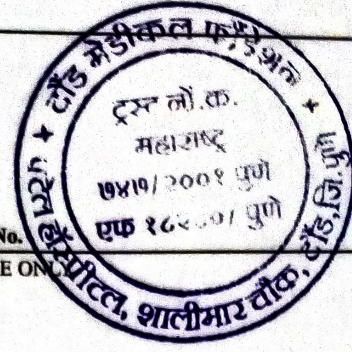 दौंड मेडीकल फौंडेशन
ट्रस्ट लों.क.
महाराष्ट्र
७४१/२००१ पुणे
एफ / पुणे
हॉस्पीटल, शालीमार चौक, दौंड, जि. पुणे
No.
E ONLY